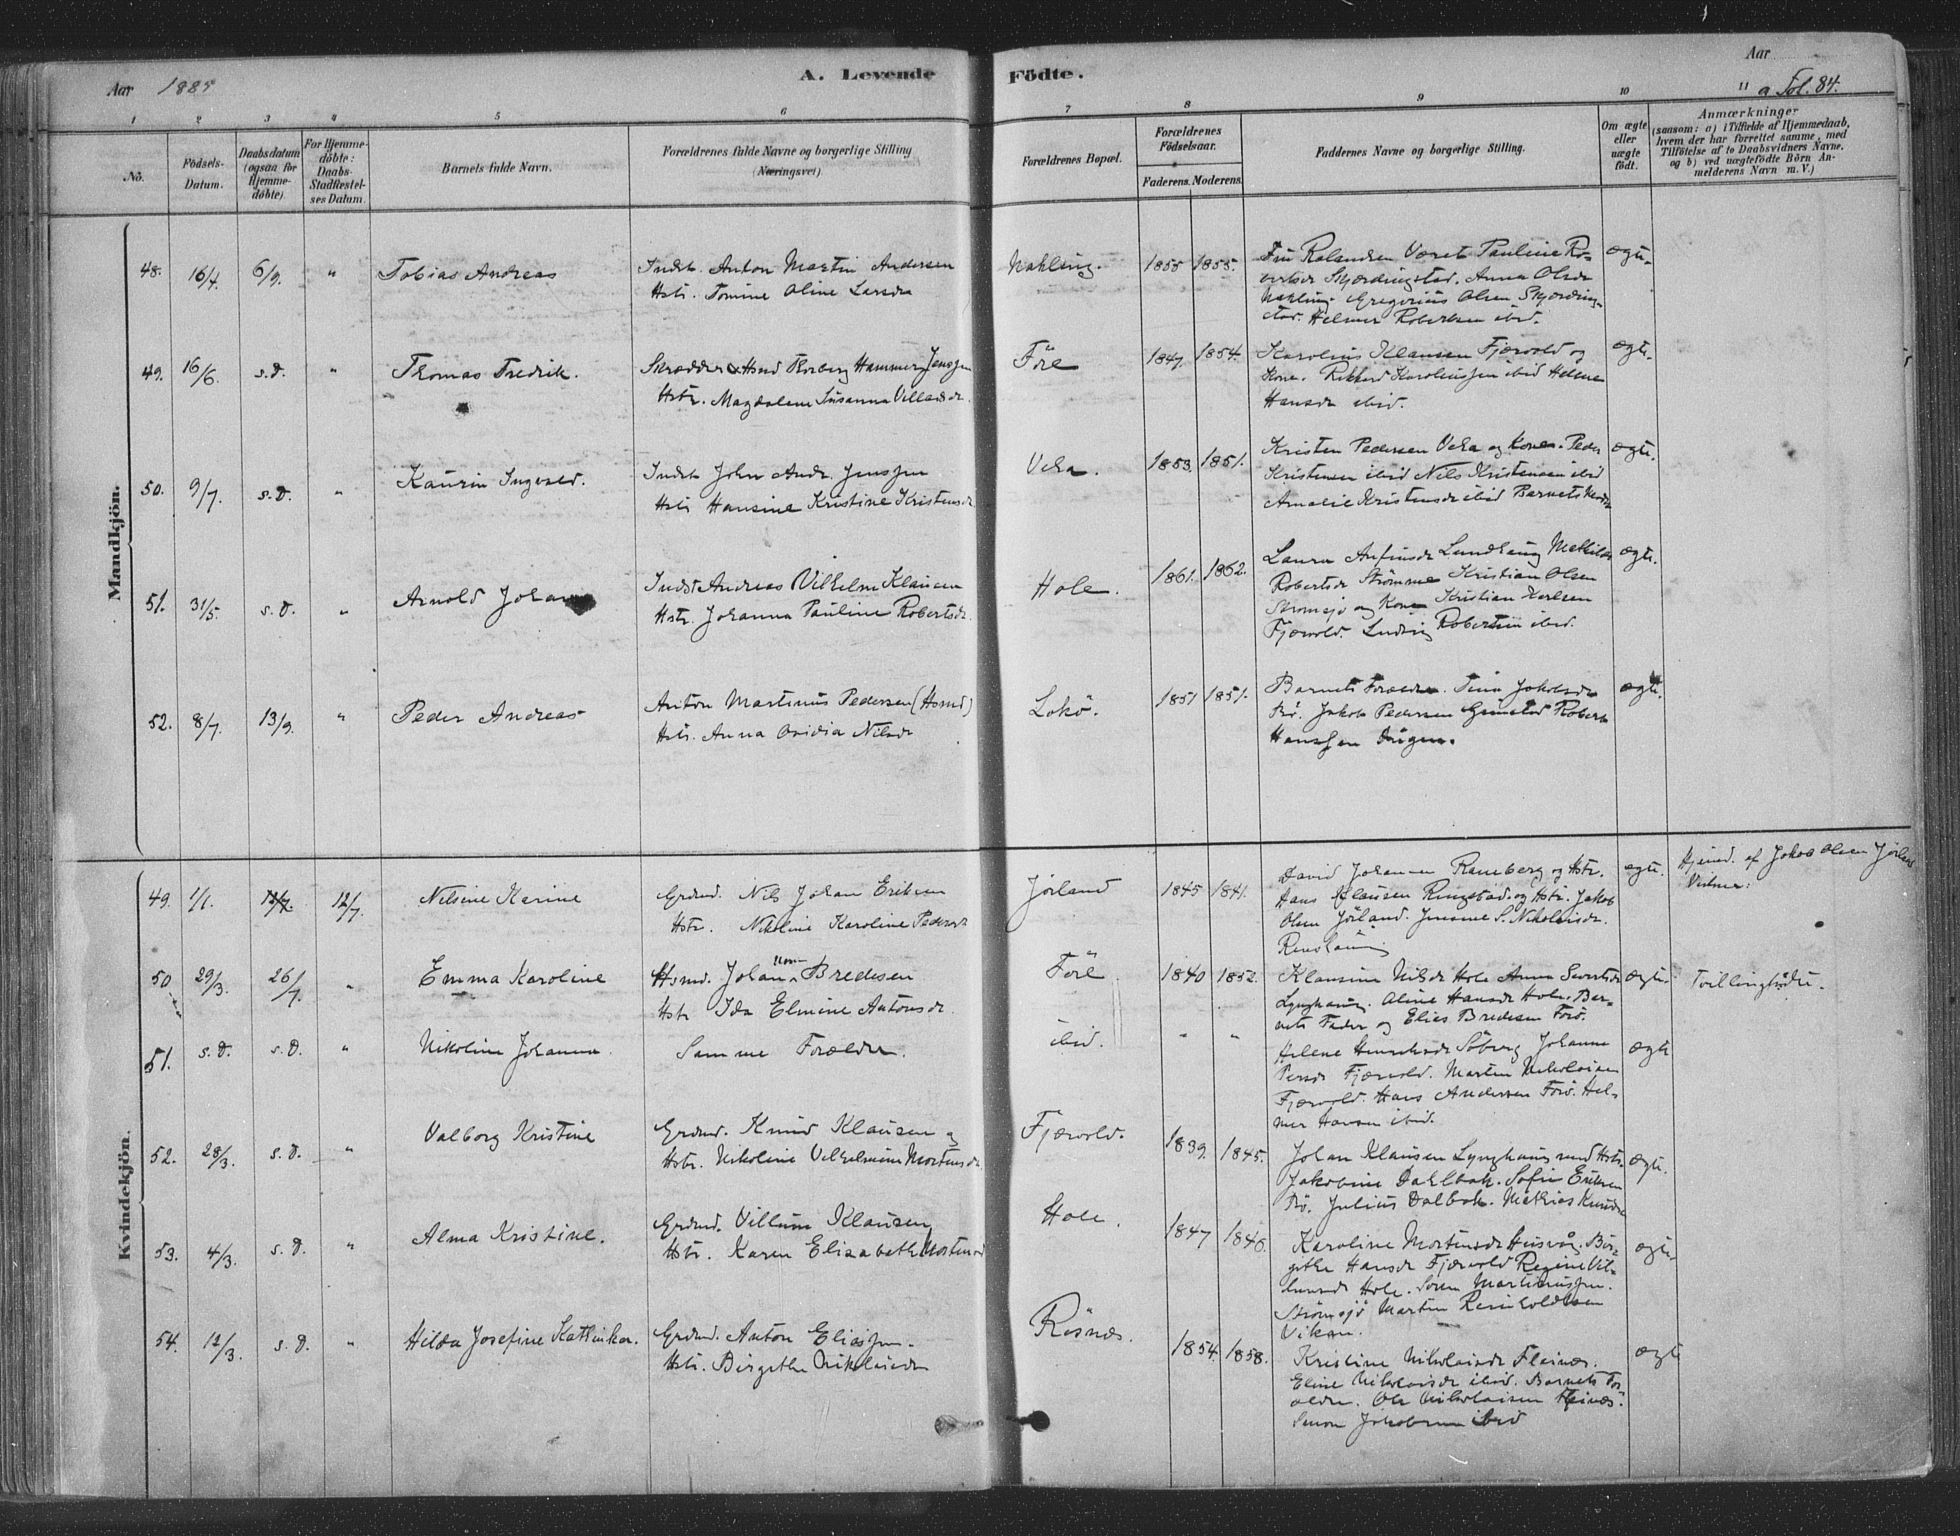 Aar 1885
A. Levende Födte.
Aar
a Fol. 84.
1 2 3 4 5 6 7 8 9 10 11
No.
Födsels-Datum.
Daabsdatum (ogsaa for Hjemme-döbte)
For Hjemme-döbte: Daabs-Stadfæstel-ses Datum.
Barnets fulde Navn.
Forældrenes fulde Navne og borgerlige Stilling (Næringsvei)
Forældrenes Bopæl.
Forældrenes Födselsaar.
Faderens. Moderens.
Faddernes Navne og borgerlige Stilling.
Om ægte eller uægte födt.
Anmærkninger
(saasom: a) i Tilfælde af Hjemmedaab, hvem der har forrettet samme, med Tilföielse af to Daabsvidners Navne, og b) ved uægtefödte Börn An-melderens Navn m. V.)
Mandkjön.
48. 16/4. 6/9. " Tobias Andreas
Indst. Anton Martin Andersen
Hstr. Tomine Oline Larsdr
1855 1855.
Fin Rolandsen Været Pauline Ro-
bertsdr Skjærdingstad. Anna Olsdr
Gregorius Olsen Skjærding-
stad. Helmer Robertsen ibid.
ægte.
49. 16/6. s.d. " Thomas Fredrik.
Skrædder & Hsmd Thorberg Hammer Jenssen
Hstr. Magdalene Susanna Villadsdr.
Före
1847. 1854.
Karolius Klausen Fjærvold og
Kone. Rikhard Karoliussen ibid Helene
Hansdr ibid.
ægte.
50. 9/7. s.d. " Kaurin Ingvald.
Indst John Andr. Jenssen
Hstr Hansine Kristine Kristensdr.
Vika.
1853. 1851.
Kristen Pedersen Vika og Kone. Peder
Kristensen ibid Nils Kristensen ibid
Amalie Kristensdr ibid Barnets Moder
ægte.
51. 31/5. s.d. " Arnold Johan
Indst Andreas Vilhelm Klausen
Hstr. Johanna Pauline Robertsdr.
Hole.
1861. 1862.
Laura Anfinsdr Lundhaug Mathilde
Robertsdr Strömme Kristian Olsen
Strömsjö og Kone Kristian Karlsen
Fjærvold. Ludvig Robertsen ibid.
ægte.
52. 8/7. 13/9. " Peder Andreas
Anton Martinus Pedersen (Hsmd)
Hstr. Anna Ovidia Nilsdr
Lokö.
1851 1851.
Barnets Forældre. Tina Jakobsdr
Bö. Jakob Pedersen Grimstad Robert
Hanssen
ægte.
Kvindekjön.
49. 1/1. 12/7. 12/7. Nelsine Karine
Grdmd. Nils Johan Eriksen
Hstr. Nikoline Karoline Pedersdr
Jörland
1845 1841.
David Johansen Ramberg og Hstr.
Hans Klausen Ringstad og Hstr. Jakob
Olsen Jörland. Jensine S. Nikolaisdr.
Renshaug
ægte.
Hjemd. af Jakob Olsen Jörland
50 29/3. 26/7. " Emma Karoline
Hsmd. Johan Bredesen
Hstr Ida Elmine Antonsdr.
Före
1840 1852.
Klausine Nilsdr Hole Anna Sivertsdr
Lynghaug. Aline Hansdr Hole. Bar-
nets Fader og Elias Bredesen Forö.
ægte.
Tvillingfödte.
51. s.d. s.d. " Nikoline Johanna.
Samme Forældre.
ibid.
" "
Helene Henriksdr Söberg Johanna
Persdr Fjærvold. Martin Nikolaisen
Fjærvold. Hans Andersen Forö. Hel-
mer Hansen ibid.
ægte
52. 28/3. s.d. " Valborg Kristine
Grdmd. Knud Klausen og
Hstr. Nikoline Vilhelmine Mortensdr.
Fjærvold.
1839. 1845.
Johan Klausen Lynghaug med Hstr.
Jakobine Dahlbak. Sofie Eriksen
Bö. Julius Dalbak. Mathias Knuds
ægte.
53. 4/3. s.d. " Alma Kristine.
Grdmd. Villum Klausen
Hstr. Karen Elisabeth Mortensd
Hole.
1847 1846.
Karoline Mortensdr Husvåg. Bir-
githe Hansdr Fjærvold Regine Vil-
lumsdr Hole. Sören Martinussen.
Strömsjö Martin Reinholdtsen
Vikan.
ægte.
54. 12/3. s.d. " Hilda Josefine Kathinka.
Grdmd. Anton Eliassen.
Hstr. Birgithe Nikolaisdr
Rösnæs.
1854. 1858.
Kristine Nikolaisdr Fleinæs.
Eline Nikolaisdr ibid. Barnets For-
ældre. Ole Nikolaisen Fleinæs.
Simon Jakobsen ibid
ægte